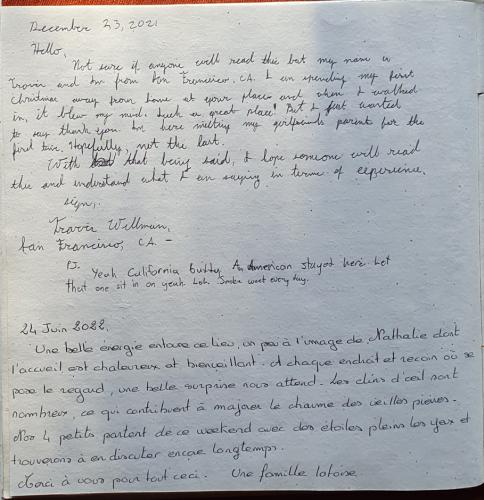 December 23, 2021
Hello,
Not sure if anyone will read this but my name is
Travis and Im from San Francisco, CA. I am spending my first
Christmas away from home at your place and when I walked
in, it blew my mind. Such a great place! But I just wanted
to say thank you. Im here meeting my girlfriends parent for the
first time. Hopefully, not the last.
With that being said, I hope someone will read
this and understand what I am saying in terms of experience.
sign,.
Travis Willman,
San Francisco, CA. -
PS. Yeah California buddy. An American stayed here. Let
that one sit in on yeah. Loh. Smoke weet every day.
24 Juin 2022.
Une belle énergie entoure ce lieu, un peu à l'image de Nathalie dont
l'accueil est chaleureux et bienveillant. A chaque endroit et recoin où se
pose le regard, une belle surprise nous attend. Les clins d'œil sont
nombreux, ce qui contribuent à majorer le charme des vieilles pierres.
Nos 4 petits partent de ce weekend avec des étoiles pleins les yeux et
trouverons à en discuter encore longtemps.
Merci à vous pour tout ceci. Une famille lotoise